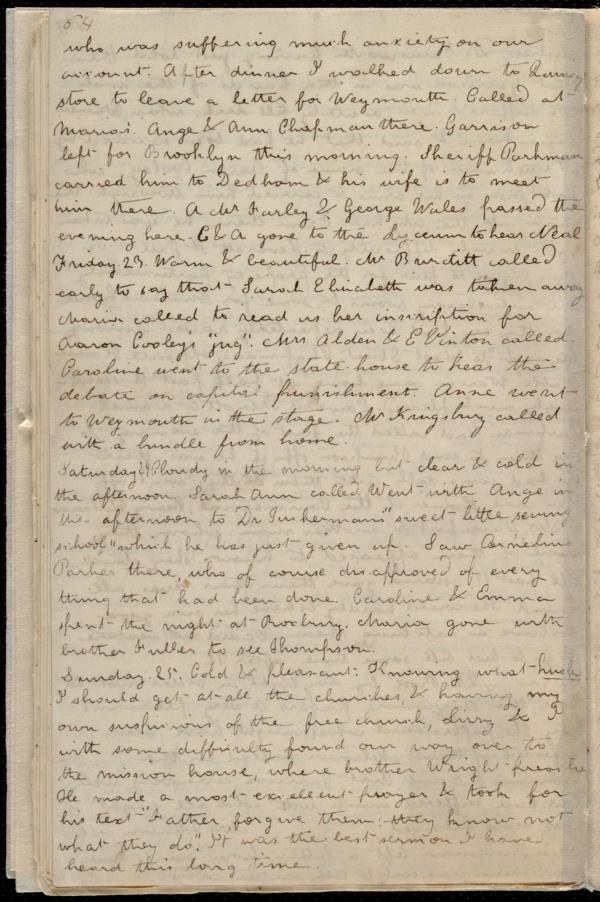 64
who was suffering much anxiety on our
account. After dinner I walked down to
store to leave a letter for Weymouth. Called at
Maria's. Ange & Ann Chapman there. Garrison
left for Brooklyn this morning. Sheriff Parkman
carried him to Dedham & his wife is to meet
him there. A Mr Farley & George Wales passed the
evening here. C & A gone to the Lyceum to hear Neal
Friday. 23. Warm & beautiful. Mr Burditt called
early to say that Sarah Elizabeth was taken away
Maria called to read us her inscription for
Aaron Cooley's "jug". Mrs Alden & E Vinton called.
Caroline went to the state house to hear the
debate on capital punishment. Anne went
to Weymouth in the stage. Mr Kingsbury called
with a bundle from home.
Saturday 24 Cloudy in the morning but clear & cold in
the afternoon. Sarah Ann called. Went with Ange in
the afternoon to Dr Tuckerman's "sweet little sewing
school" which he has just given up. Saw Cornelius
Parker there, who of course disapproved of every
thing that had been done. Caroline & Emma
spent the night at Roxbury. Maria gone with
brother Fuller to see Thompson.
Sunday. 25. Cold & pleasant. Knowing what husks
I should get at all the churches, & having my
own suspicions of the free church, Lizzy & I
with some difficulty found our way over to
the mission house, where brother Wright preaches
He made a most excellent prayer & took for
his text "Father, forgive them, they know not
what they do". It was the best sermon I have
heard this long time.